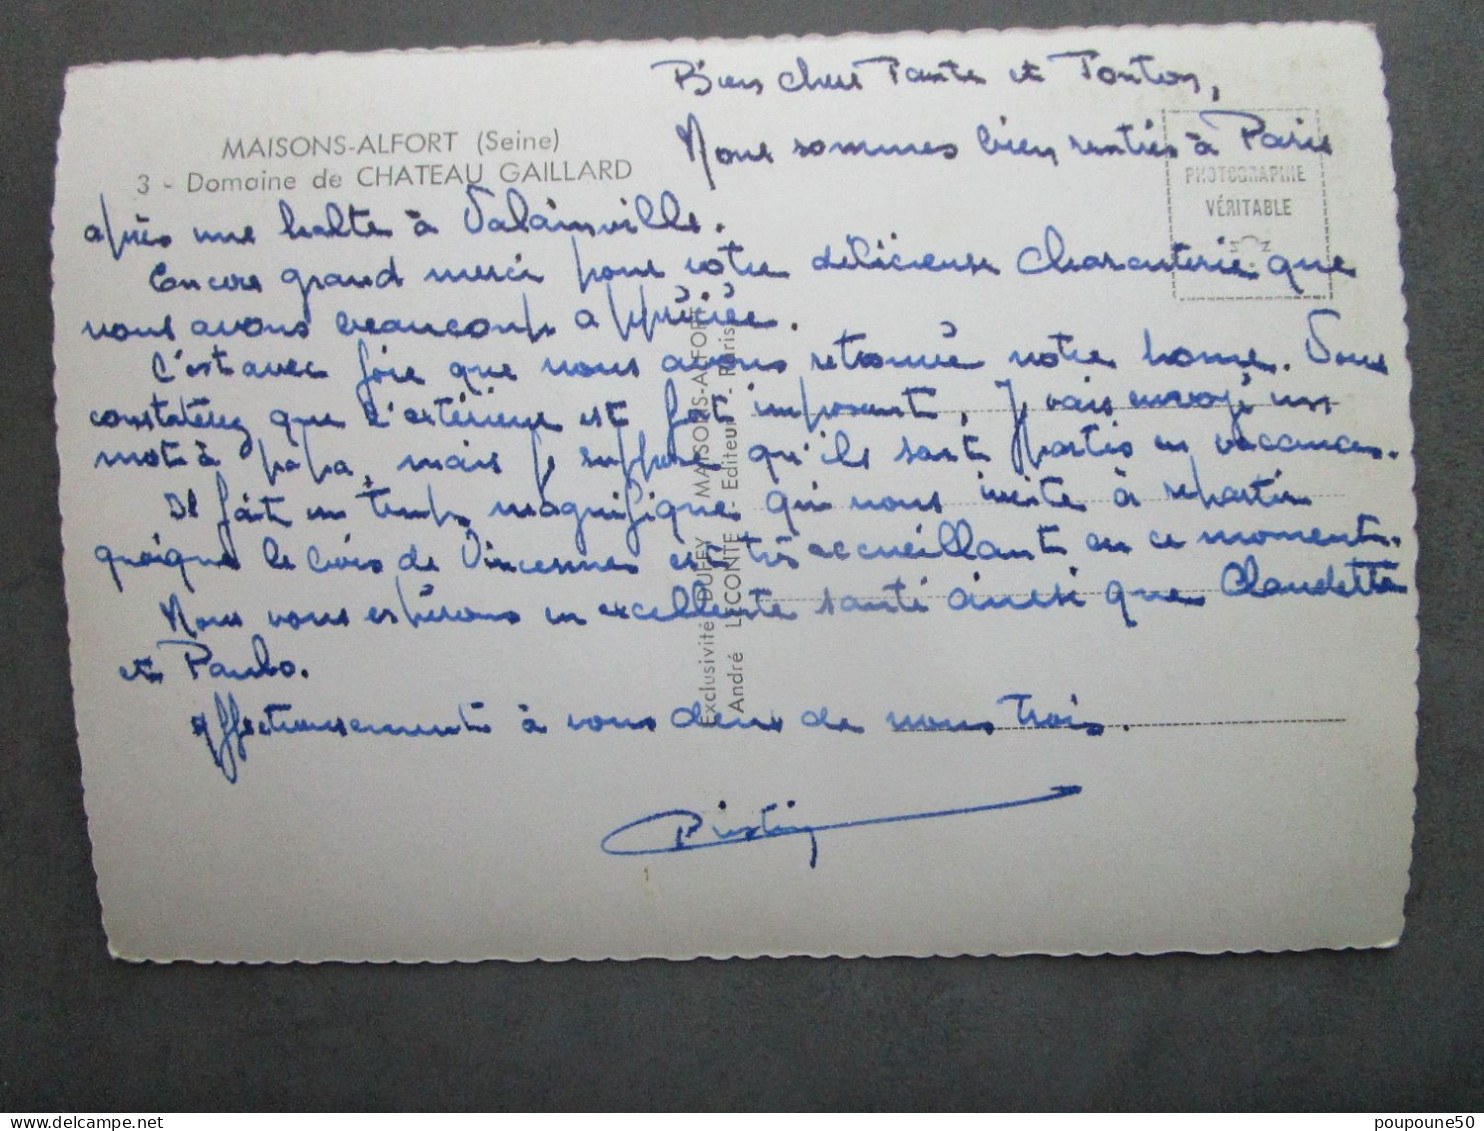 Bien chers Tante et Tonton,
MAISONS-ALFORT (Seine)
3 - Domaine de CHATEAU GAILLARD
Nous sommes bien rentrés à Paris
PHOTOGRAPHIE
VÉRITABLE
après une halte à Valainville.
Encore grand merci pour votre délicieuse charcuterie que
nous avons beaucoup appréciée.
C'est avec joie que nous avons retrouvé notre home. Vous
constaterez que l'extérieur est fort imposant. Je vais envoyé un
mot à papa, mais je suppose qu'ils sont partis en vacances.
Il fait un temps magnifique qui nous invite à repartir
quoique le bois de Vincennes est très accueillant en ce moment.
Nous vous espérons en excellente santé ainsi que Claudette
et Paulo.
Affectueusement à vous deux de nous trois.
Exclusivité DUFFY MAISONS-ALFORT
André LECONTE - Editeur - Paris
poupoune50